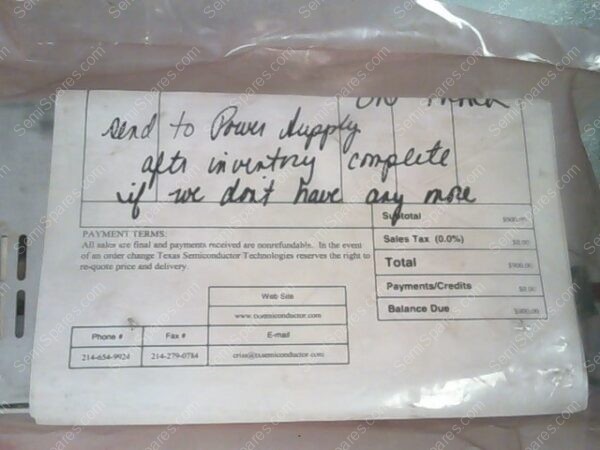 send to Power Supply
aftr inventory complete
if we don't have any more
Subtotal $900.00
PAYMENT TERMS:
All sales are final and payments received are nonrefundable. In the event
of an order change Texas Semiconductor Technologies reserves the right to
re-quote price and delivery.
Sales Tax (0.0%) $0.00
Total $900.00
Payments/Credits $0.00
Balance Due $900.00
Web Site
www.txsemiconductor.com
Phone # Fax # E-mail
214-654-9924 214-279-0784 criss@txsemiconductor.com